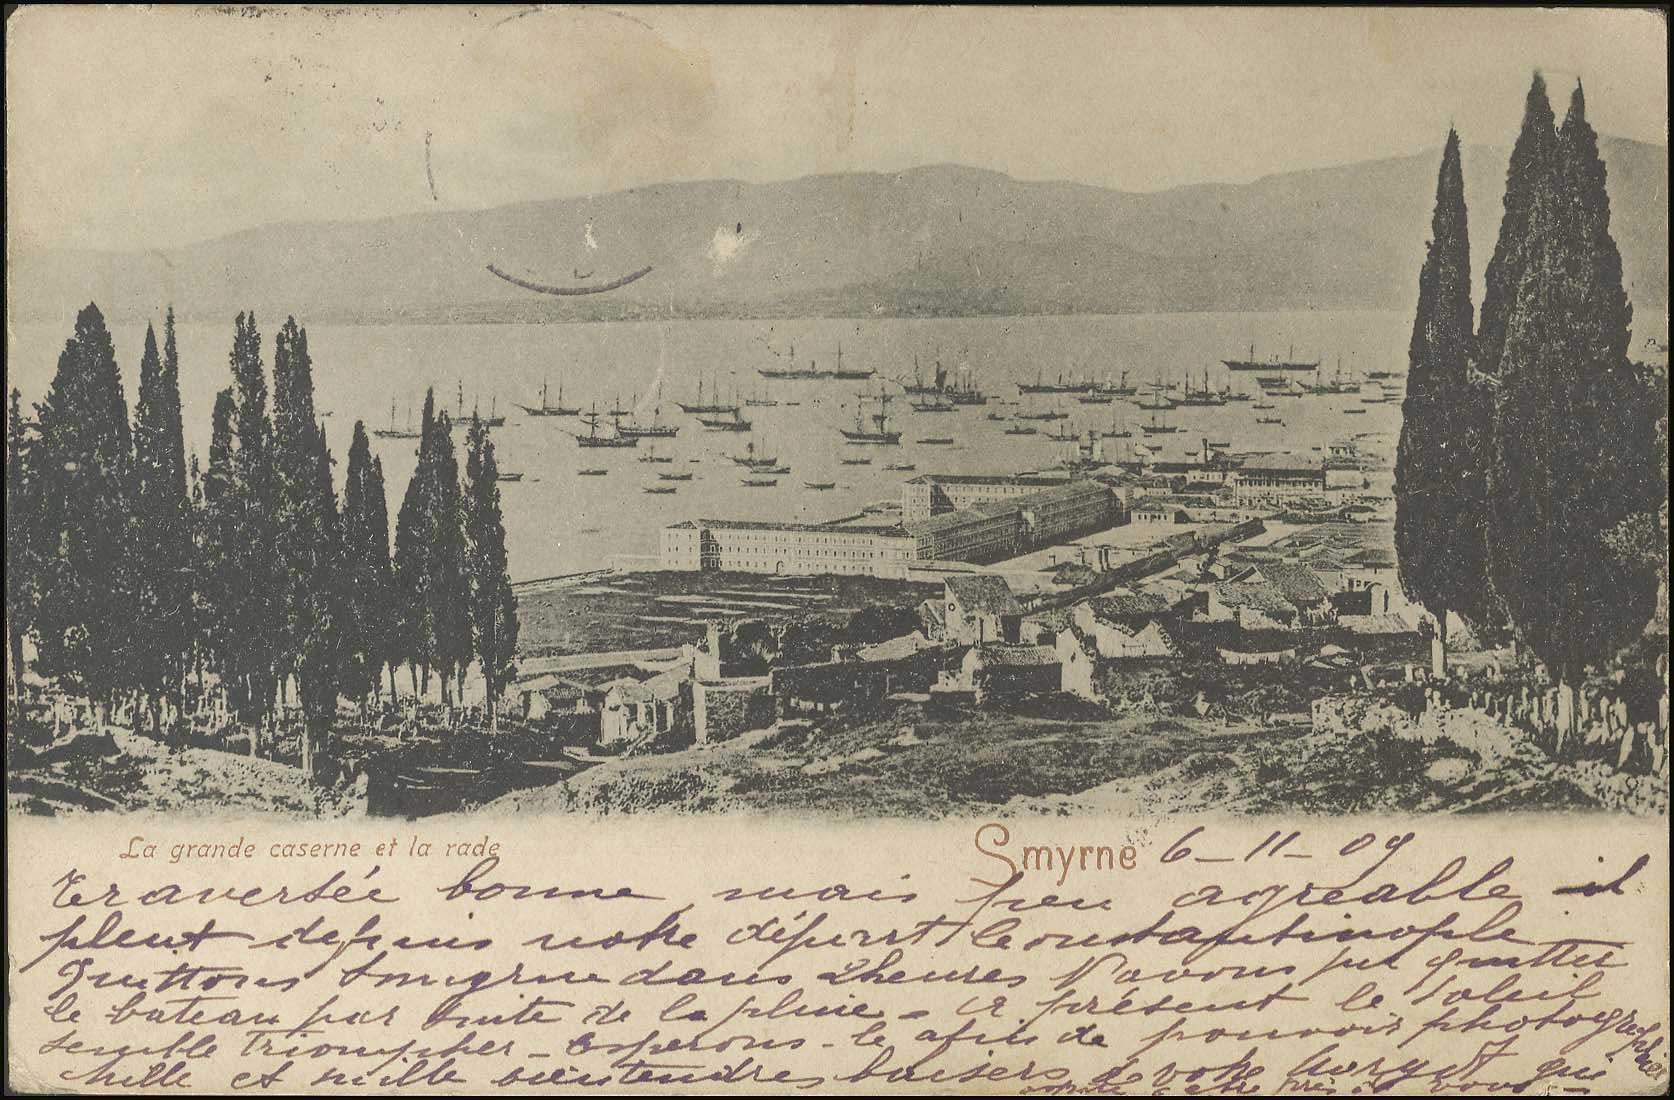 La grande caserne et la rade
Smyrne 6-11-09
Traversée bonne mais peu agréable il
pleut depuis notre départ Constantinople
Quittons Smyrne dans 2 heures N'avons pu quitter
le bateau par suite de la pluie - à présent le soleil
semble Triompher - Esperons-le afin de pouvoir photographier
Mille et mille bien tendres baisers de votre qui
être près de vous -